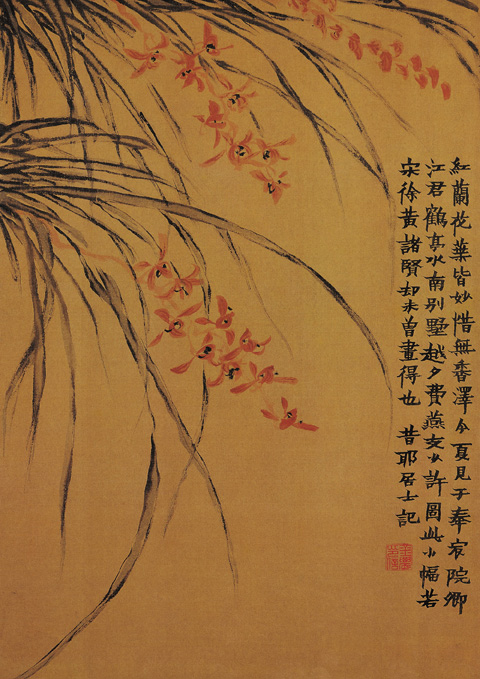 紅蘭花葉皆妙惜無香澤今夏見于奉宸院卿
江君鶴亭水南别墅越夕費燕支少許圖此小幅若
宋徐黄諸賢却未曾畫得也 昔耶居士記